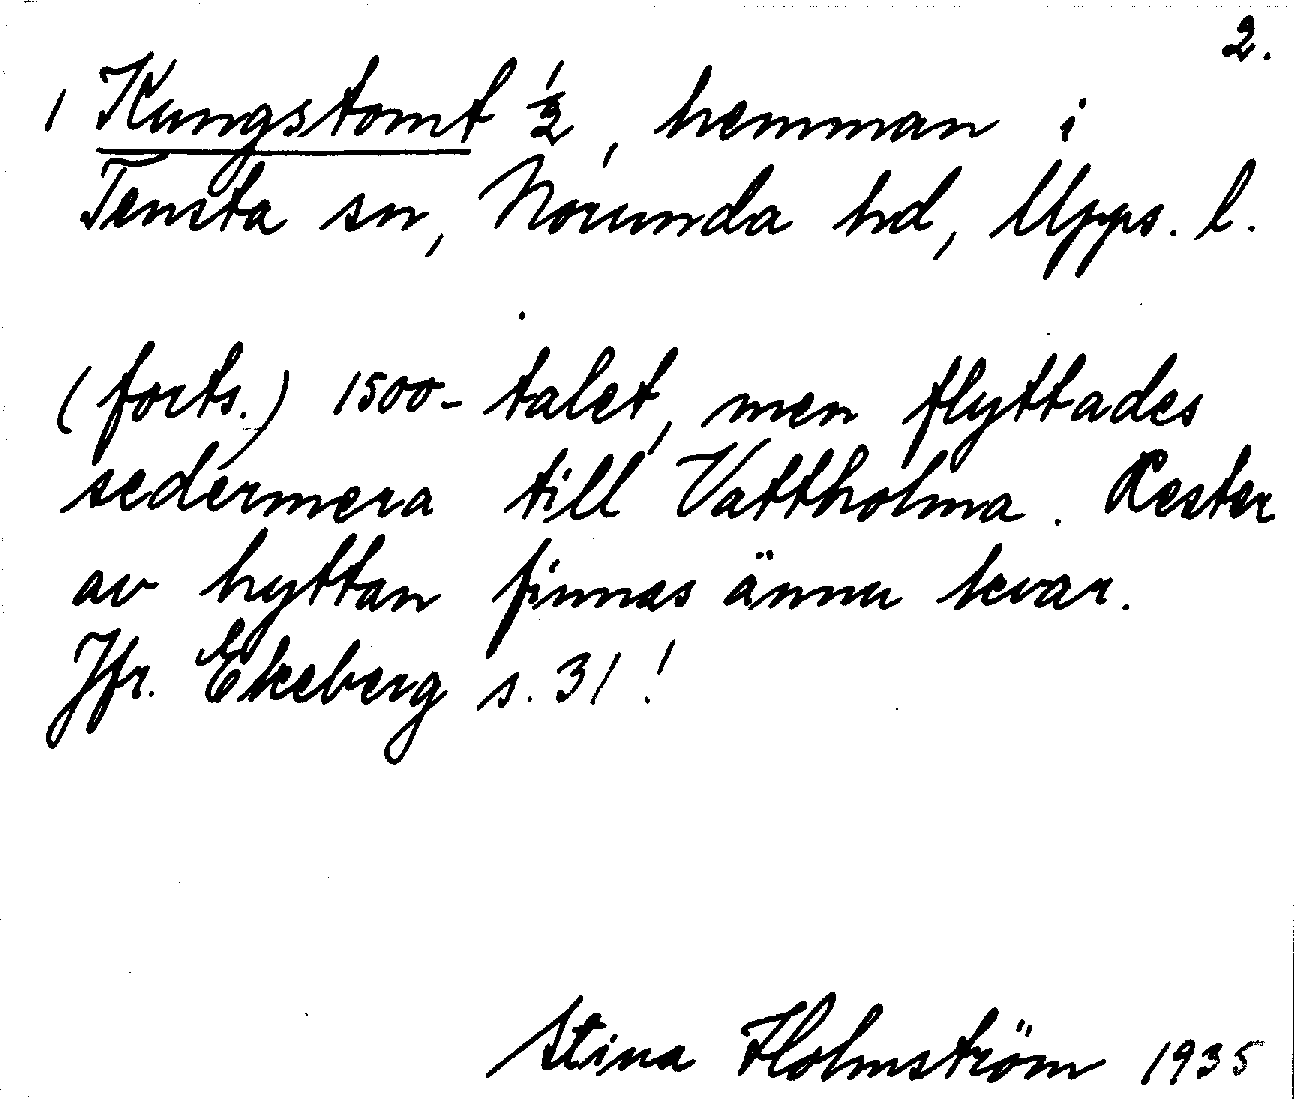 2.
1 Kungstomt ½, hemman i
Tensta sn, Norunda hd, Upps. l.
(forts.) 1500-talet, men flyttades
sedermera till Vattholma. Rester
av hyttan finnas ännu kvar.
Jfr. Ekeberg s. 31!
Stina Holmström 1935